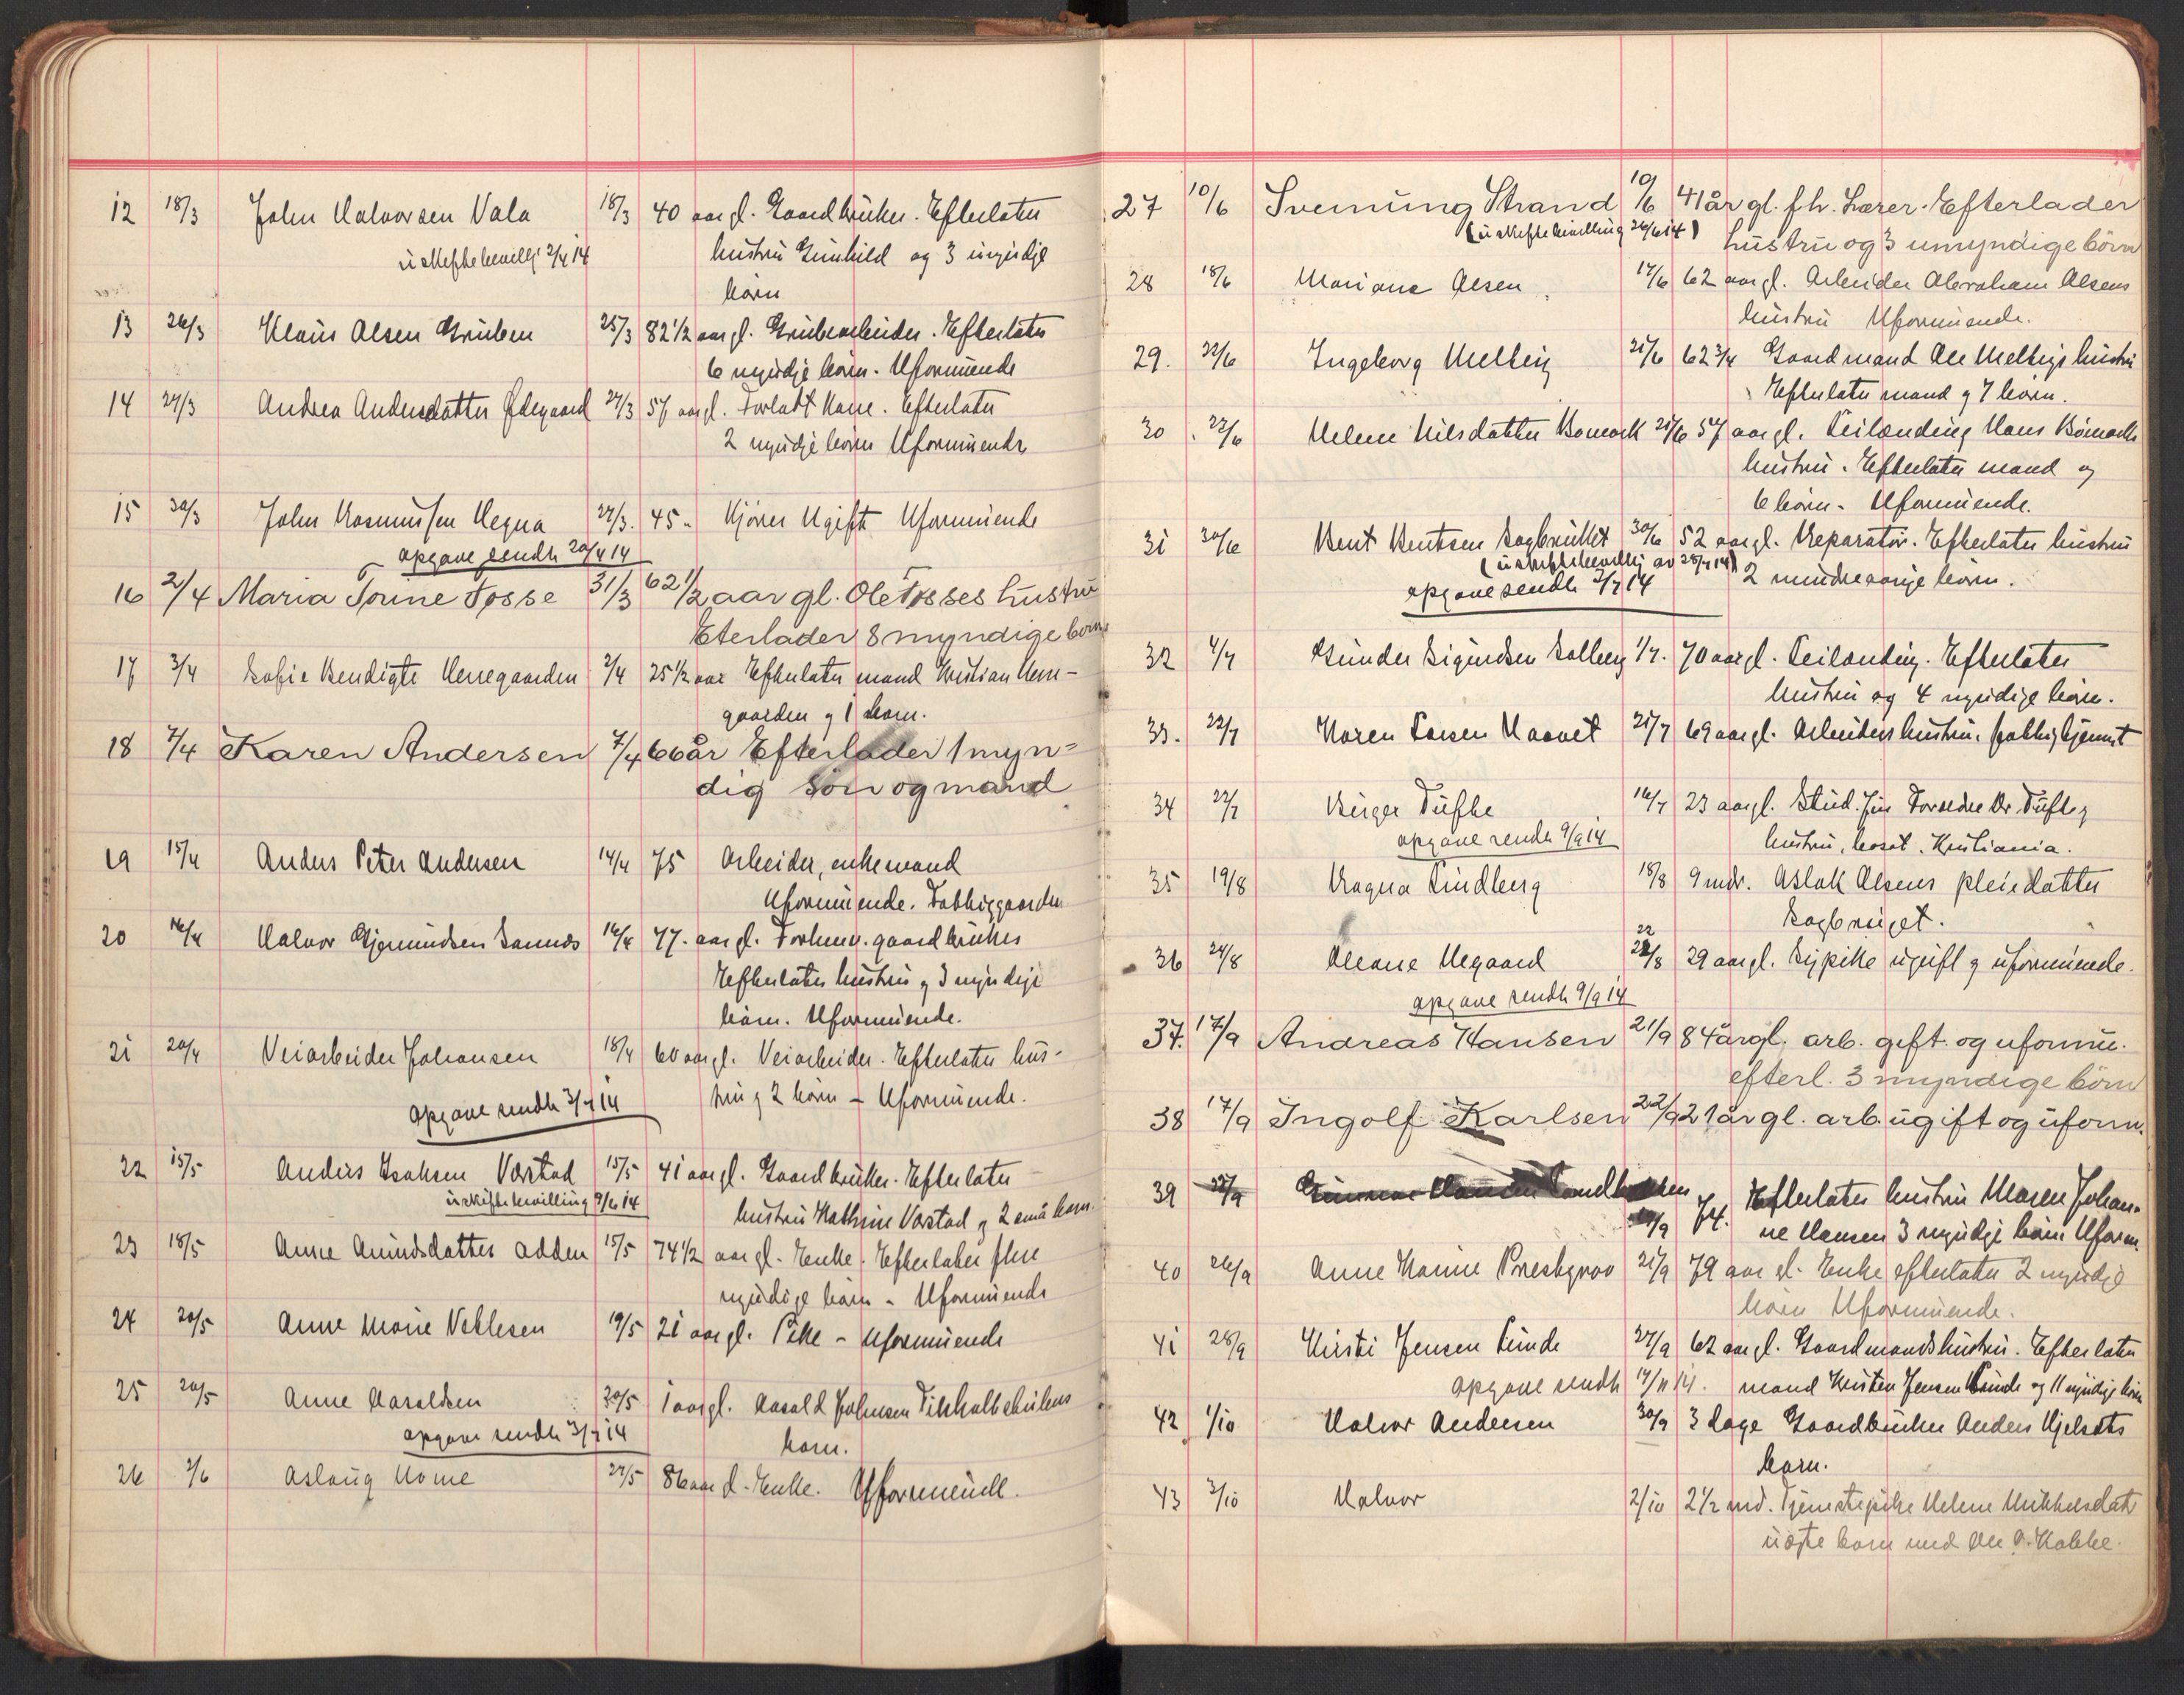 12 18/3 John Halvorsen Vala 18/3 40 aar gl. Gaardbruker. Efterlater
uskiftebevillg 2/4 14 hustru Gunhild og 3 umyndige
børn
13 26/3 Klaus Olsen Gruben 25/3 82 1/2 aar gl. Grubearbeider. Efterlater
6 myndige børn. Uformuende
14 27/3 Andrea Andersdatter Ødegaard 27/3 57 aar gl. Forladt kone. Efterlater
2 myndige børn Uformuende
15 30/3 John Rasmussen Hegna 27/3. 45 - Kjører Ugift Uformuende
opgave sendt 20/4 14
16 2/4 Maria Tonne Fosse 31/3 62 1/2 aar gl. Ole Fosses hustru
Eterlader 8 myndige børn
17 3/4 Sofie Bendigte Herregaarden 2/4 25 1/2 aar Efterlater mand Kristian Herre-
gaarden og 1 barn.
18 7/4 Karen Andersen 7/4 66 år Efterlader 1 myn=
dig søn og mand
19 15/4 Anders Peter Andersen 14/4 75 Arbeider, enkemand
Uformuende. Fattiggaarden
20 16/4 Halvor Gjermundsen Sannes 16/4 77. aar gl. Forhenv. gaardbruker
Efterlater hustru og 3 myndige
børn. Uformuende.
21 20/4 Veiarbeider Johansen 18/4 60 aar gl. Veiarbeider. Efterlater hus-
tru og 2 børn - Uformuende.
opgave sendt 3/7 14
22 15/5 Anders Isaksen Vårstad 15/5 41 aar gl. Gaardbruker. Efterlater
uskiftebevilling 9/6 14 hustru Kathrine Vårstad og 2 små barn.
23 18/5 Anne Amundsdatter Odden 15/5 74 1/2 aar gl. Enke. Efterlater flere
myndige børn - Uformuende
24 20/5 Anne Marie Vetlesen 19/5 21 aar gl. Pike - Uformuende
25 20/5 Anne Haraldsen 20/5 1 aar gl. Harald Johnsen
barn.
opgave sendt 3/7 14
26 2/6 Aslaug Home 27/5 86 aar gl. Enke. Uformuende.
27 10/6 Svenung Strand 10/6 41 år gl. fh. Lærer. Efterlader
(uskiftebevilling 26/6 14) hustru og 3 umyndige børn
28 18/6 Mariane Olsen 17/6 62 aar gl. Arbeider Abraham Olsens
hustru Uformuende.
29. 22/6 Ingeborg Melteig 21/6 62 3/4 Gaardmand Ole Melteigs hustru
Efterlater mand og 7 børn.
30 22/6 Helene Nilsdatter Bomark 21/6 57 aar gl. Leilænding Hans Bomarks
hustru. Efterlater mand og
6 børn. Uformuende.
31 30/6 Bent Bentsen Sagbruket 30/6 52 aar gl. Reparatør. Efterlater hustru
(uskiftebevillig av 28/7 14) 2 mindreaarige børn.
opgave sendt 3/7 14
32 4/7 Gunder Sigurdsen Solberg 1/7. 70 aar gl. Leilænding. Efterlater
hustru og 4 myndige børn.
33. 22/7 Karen Larsen Haavet 21/7 69 aar gl. Arbeiders hustru. fattighjemmet
34 22/7 Birger Tufte 16/7 23 aar gl. Stud. Jur Forældre Dr. Tufte og
opgave sendt 9/9 14 hustru, bosat. Kristiania.
35 19/8 Ragna Lindberg 18/8 9 mdr. Aslak Olsens pleiedatter
Sagbruget.
36 24/8 Oleane Hegaard 22 22/8 29 aar gl. Sypike ugift og uformuende.
opgave sendt 9/9 14
37. 17/9 Andreas Hansen 21/9 84 år gl. arb. gift. og uformu.
efterl. 3 myndige børn
38 17/9 Ingolf Karlsen 22/9 21 år gl. arb. ugift og uform.
39 22/9 Hansen 74. Efterlater hustru Maren Johan-
ne Hansen 3 myndige børn Uform.
40 26/9 Anne Karine Prestgrov 21/9 79 aar gl. Enke efterlater 2 myndige
børn Uformuende.
41 28/9 Kirsti Jensen Lunde 27/9 62 aar gl. Gaardmandshustru. Efterlater
opgave sendt 14/11 14. mand Kristen Jensen Lunde og 11 myndige børn
42 1/10 Halvor Andersen 30/9 3 dage Gaardbruker Anders Kjelsaas
barn.
43 3/10 Halvor 2/10 2 1/2 md. Tjenestepike Helene Mikkelsdat
uægte barn med Ole